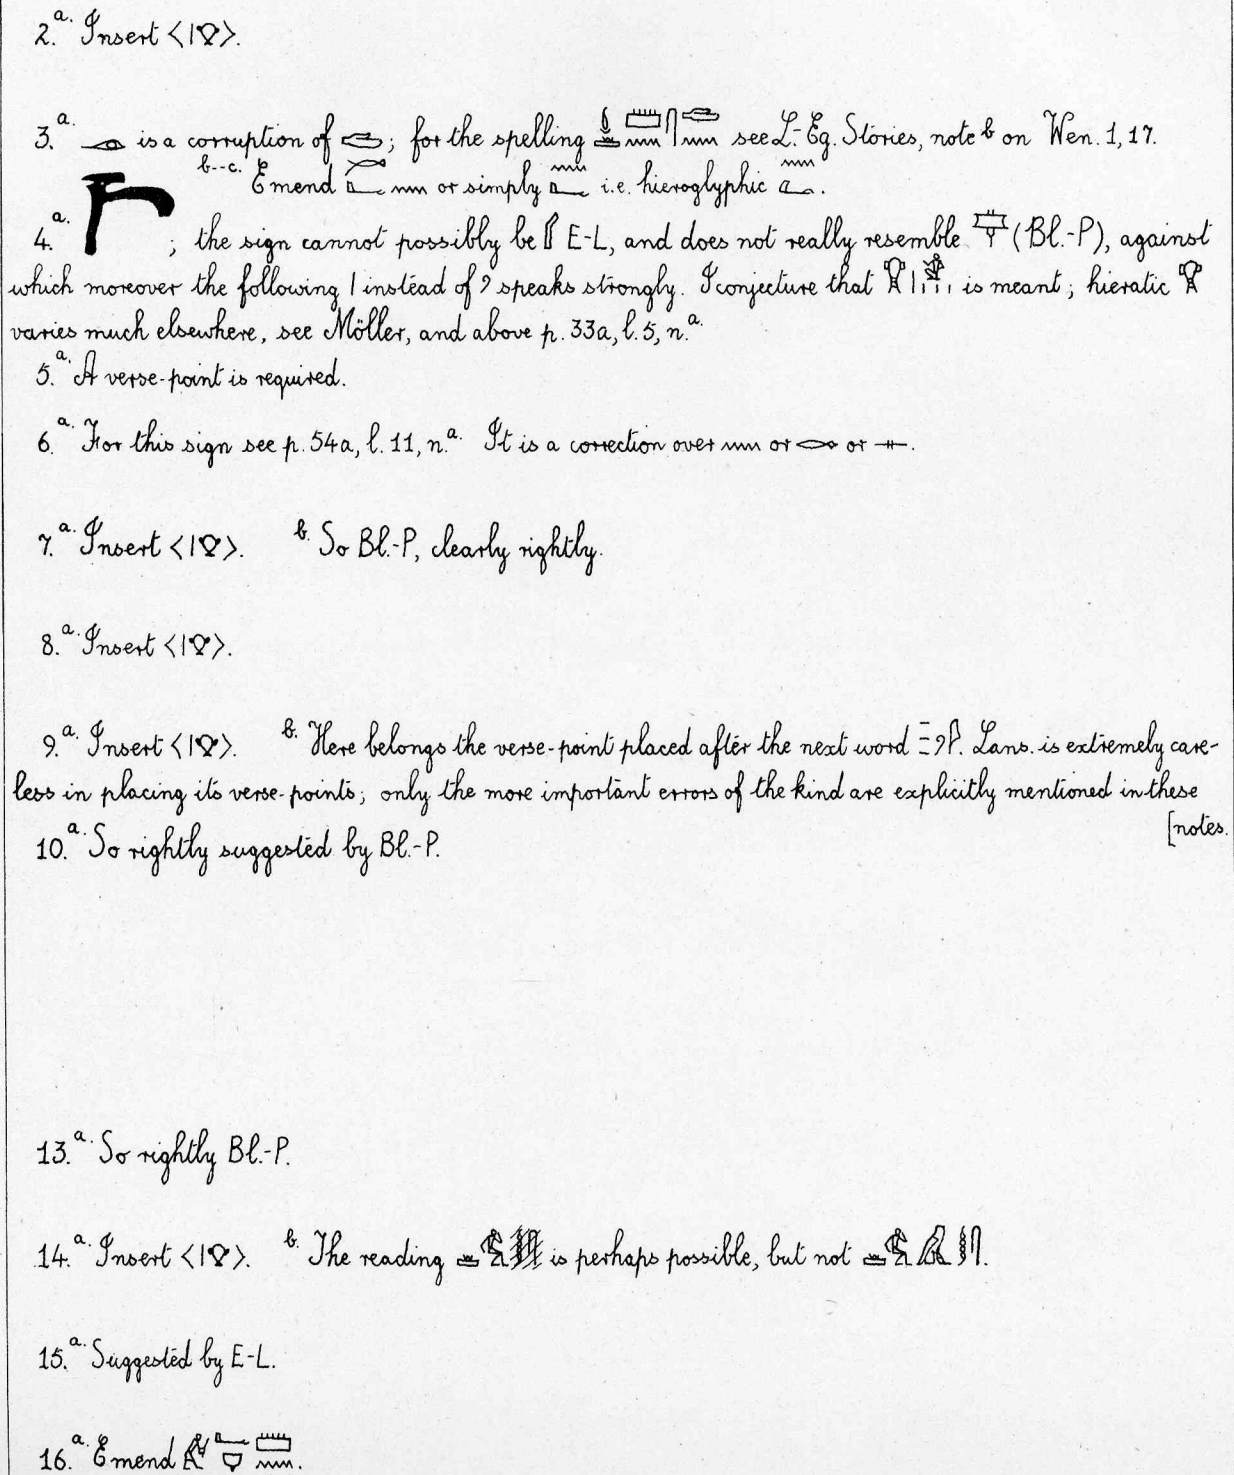 2.ᵃ· Insert <𓏤𓁷>.
3.ᵃ· is a corruption of 𓂧; for the spelling see L.-Eg. Stories, note b on Wen. 1, 17.
b--c. Emend or simply i.e. hieroglyphic .
4.ᵃ· ; the sign cannot possibly be E-L, and does not really resemble (Bl.-P), against
which moreover the following | instead of 𓏲 speaks strongly. I conjecture that is meant; hieratic
varies much elsewhere, see Möller, and above p. 33a, l. 5, n.ᵃ·
5.ᵃ· A verse-point is required.
6.ᵃ· For this sign see p. 54a, l. 11, n.ᵃ· It is a correction over 𓈖 or 𓂋 or 𓊃.
7.ᵃ· Insert <𓏤𓁷>. b. So Bl.-P, clearly rightly.
8.ᵃ· Insert <𓏤𓁷>.
9.ᵃ· Insert <𓏤𓁷>. b. Here belongs the verse-point placed after the next word . Lans. is extremely care-
less in placing its verse-points; only the more important errors of the kind are explicitly mentioned in these
[notes.
10.ᵃ· So rightly suggested by Bl.-P.
13.ᵃ· So rightly Bl.-P.
14.ᵃ· Insert <𓏤𓁷>. b. The reading is perhaps possible, but not .
15.ᵃ· Suggested by E-L.
16.ᵃ· Emend .